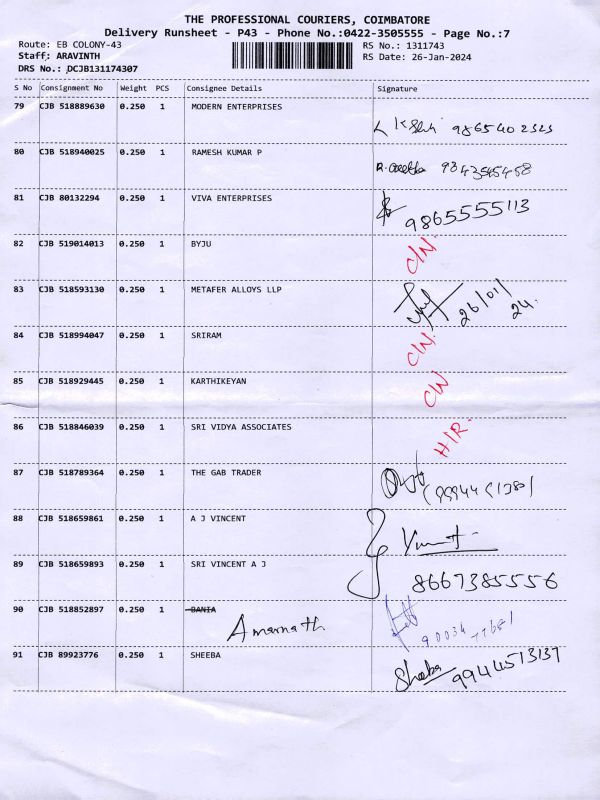 THE PROFESSIONAL COURIERS, COIMBATORE
Delivery Runsheet - P43 - Phone No.:0422-3505555 - Page No.:7
Route: EB COLONY-43
RS No.: 1311743
Staff: ARAVINTH
RS Date: 26-Jan-2024
DRS No.: DCJB131174307
S No Consignment No Weight PCS Consignee Details Signature
79 CJB 518889630 0.250 1 MODERN ENTERPRISES
9865402323
80 CJB 518940025 0.250 1 RAMESH KUMAR P
R. 9843545458
81 CJB 80132294 0.250 1 VIVA ENTERPRISES
9865555113
82 CJB 519014013 0.250 1 BYJU
C/N.
83 CJB 518593130 0.250 1 METAFER ALLOYS LLP
26/01/24.
84 CJB 518994047 0.250 1 SRIRAM
C/N.
85 CJB 518929445 0.250 1 KARTHIKEYAN
C/N
86 CJB 518846039 0.250 1 SRI VIDYA ASSOCIATES
H/R.
87 CJB 518789364 0.250 1 THE GAB TRADER
88 CJB 518659861 0.250 1 A J VINCENT
Vincent
89 CJB 518659893 0.250 1 SRI VINCENT A J
8667385556
90 CJB 518852897 0.250 1 BANIA
Amarnath
91 CJB 89923776 0.250 1 SHEEBA
Sheeba 9944513137